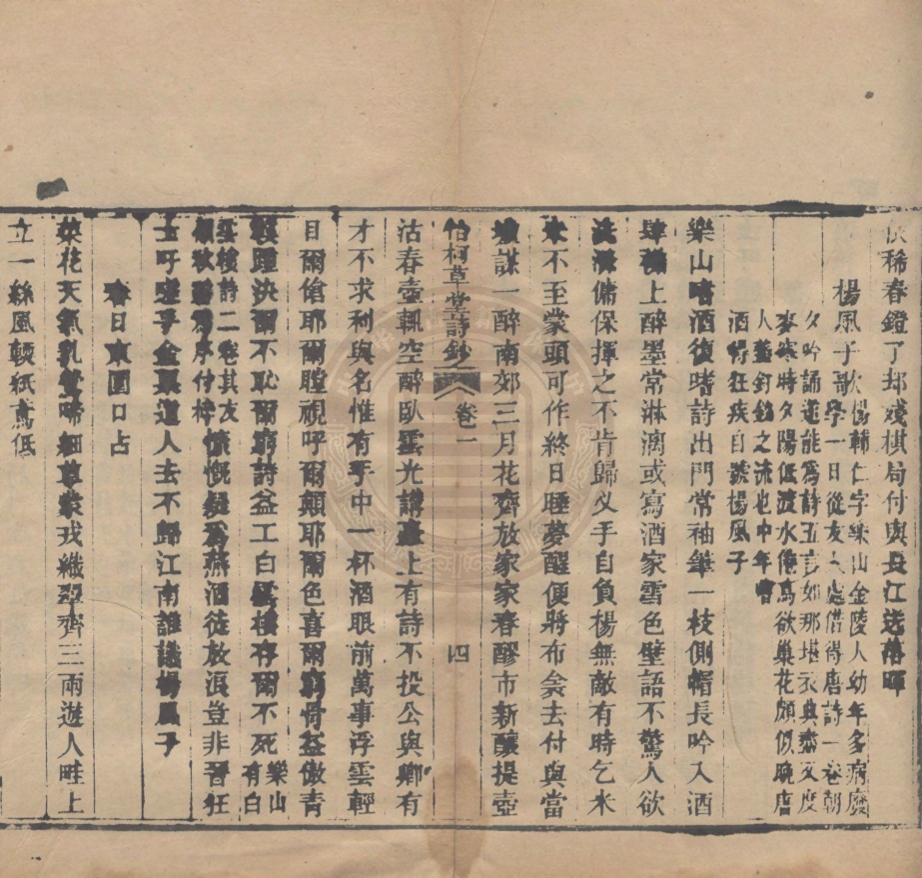 稀春鐙了却殘棋局付與長江送落暉
楊風子歌楊輔仁字樂山金陵人幼年多病廢
學一日從友人處借得唐詩一卷朝
夕吟誦遂能為詩五言如那堪衣典盡又度
麥寒時夕陽低渡水倦鳥欲巢花頗似晚唐
人蓋釘鉸之流也中年嘗
酒佯狂疾自號楊風子
樂山嗜酒復嗜詩出門常袖筆一枝側帽長吟入酒
肆樓上醉墨常淋漓或寫酒家雪色壁語不驚人欲
洗滌傭保揮之不肯歸义手自負楊無敵有時乞米
米不至蒙頭可作終日睡夢醒便將布衾去付與當
壚謀一醉南郊三月花齊放家家春醪市新釀提壺
怡柯草堂詩鈔 卷一 四
沽春壺輒空醉臥雲光講臺上有詩不投公與卿有
才不求利與名惟有手中一杯酒眼前萬事浮雲輕
目爾傖耶爾瞠視呼爾顛耶爾色喜爾窮骨益傲青
蚨踵決爾不恥爾窮詩益工白雲樓存爾不死樂山
有白
雲樓詩二卷其友
序付梓慷慨疑爲燕酒徒放浪豈非晉狂
士吁嗟乎金粟道人去不歸江南誰識楊風子
春日東園口占
菜花天氣乳鶯啼細草裙戎織翠齊三兩遊人畦上
立一絲風輭紙鳶低